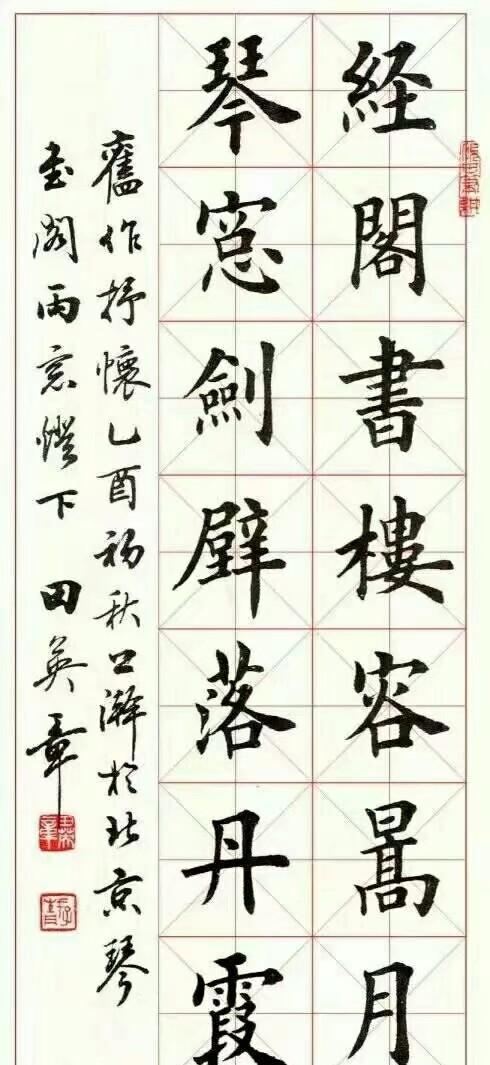 経閣書樓容暠月
琴窓劍壁落丹霞
舊作抒懷乙酉初秋於北京琴
書閣雨窓燈下田英章